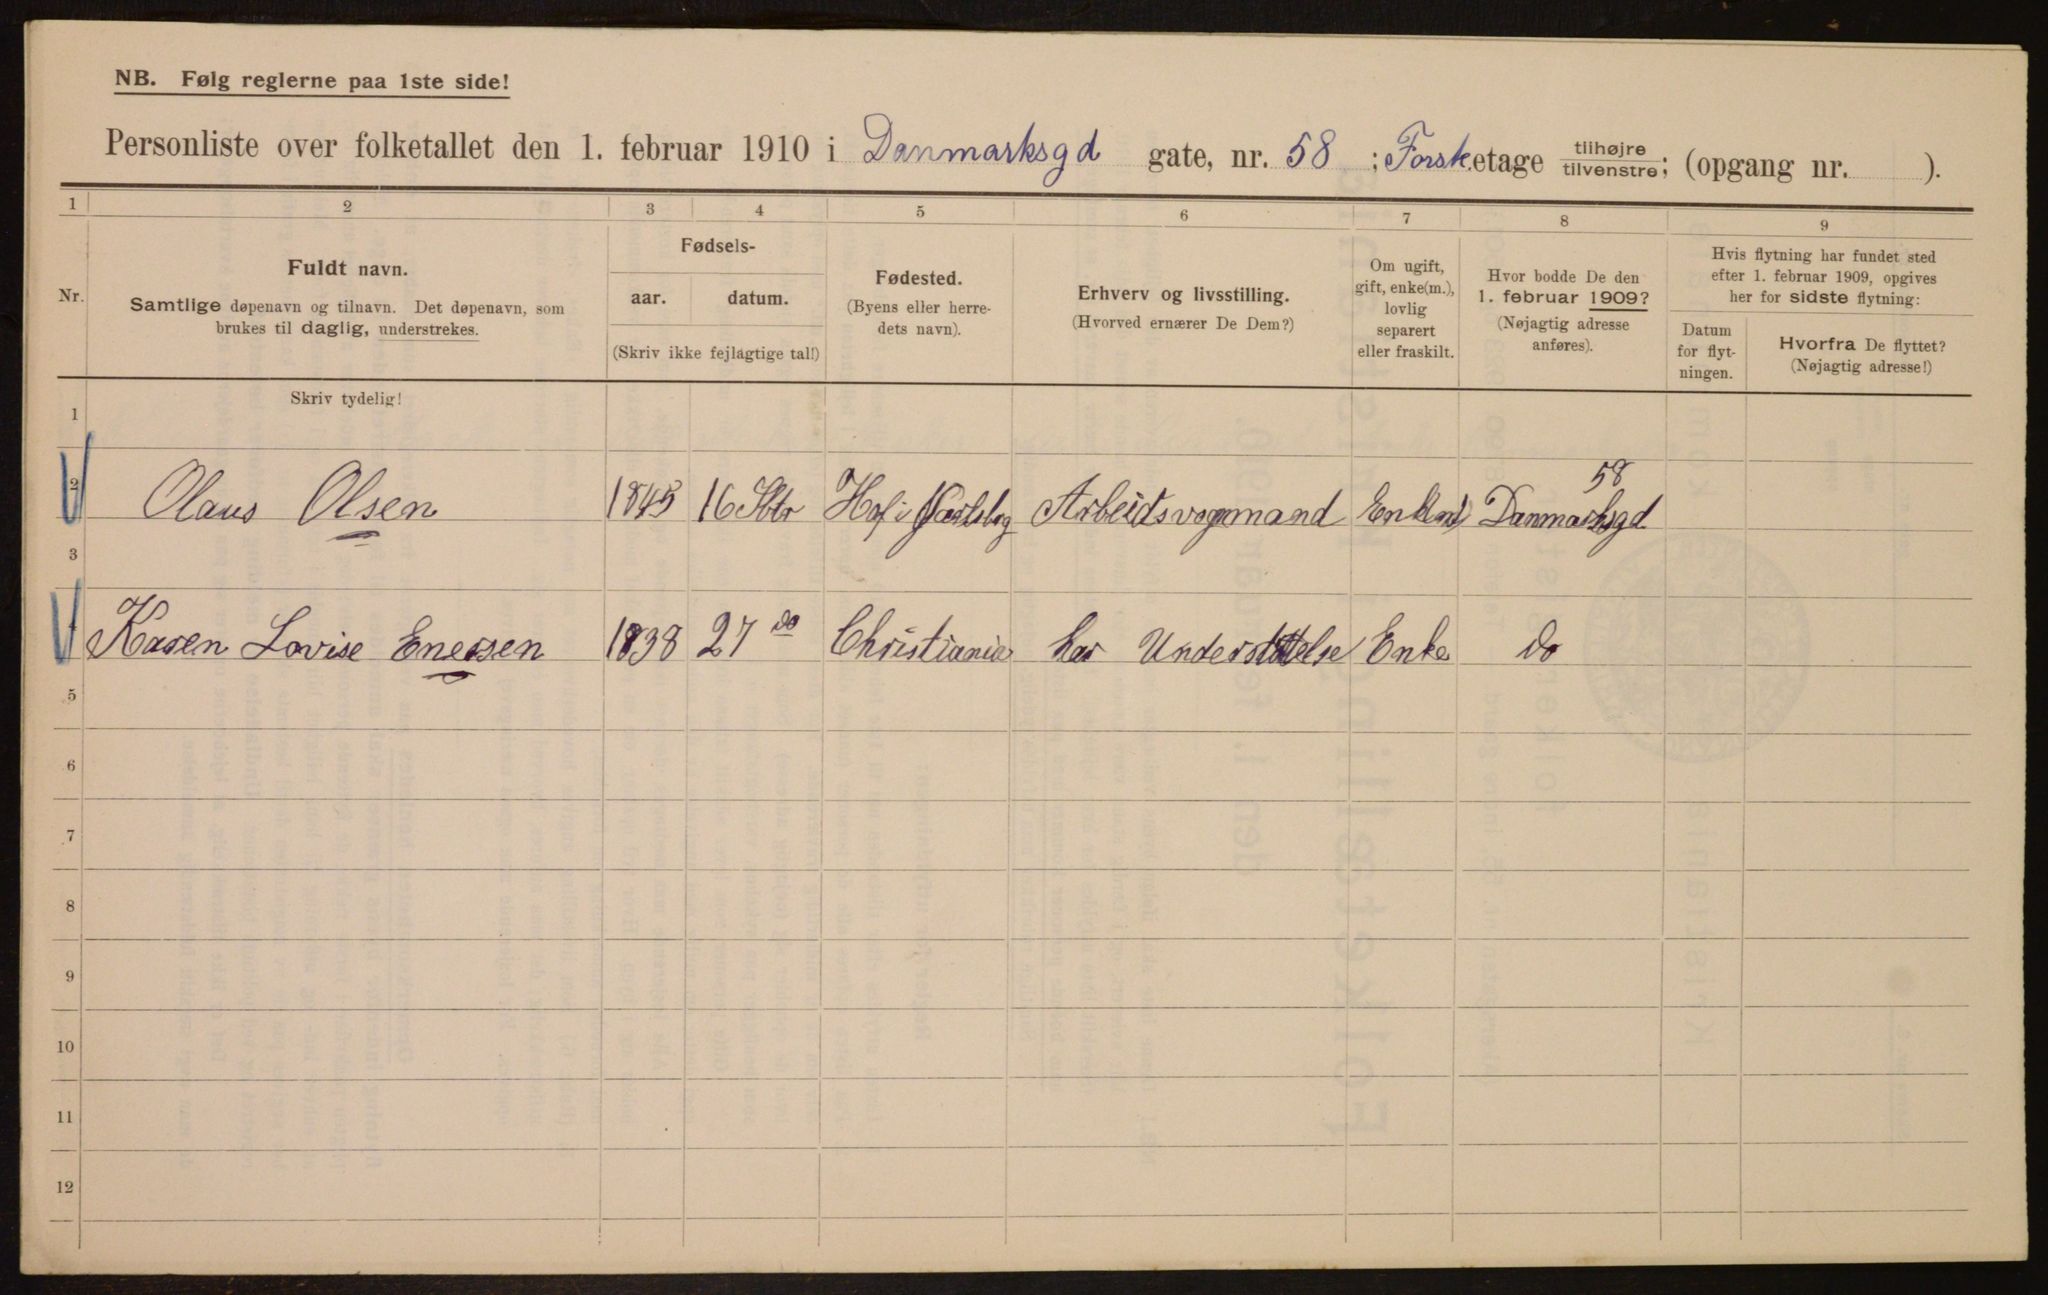 NB. Følg reglerne paa 1ste side!
Personliste over folketallet den 1. februar 1910 i Danmarksgd gate, nr. 58 ; Forsk. etage tilhøjre tilvenstre; (opgang nr. ).
1 2 3 4 5 6 7 8 9
Nr.
Fuldt navn.
Samtlige døpenavn og tilnavn. Det døpenavn, som
brukes til daglig, understrekes.
Fødsels-
aar. datum.
(Skriv ikke fejlagtige tal!)
Fødested.
(Byens eller herre-
dets navn).
Erhverv og livsstilling.
(Hvorved ernærer De Dem?)
Om ugift,
gift, enke(m.),
lovlig
separert
eller fraskilt.
Hvor bodde De den
1. februar 1909?
(Nøjagtig adresse
anføres).
Hvis flytning har fundet sted
efter 1. februar 1909, opgives
her for sidste flytning:
Datum
for flyt-
ningen.
Hvorfra De flyttet?
(Nøjagtig adresse!)
Skriv tydelig!
1
2 Olaus Olsen 1845 16 Hof i Jarlsbrg Arbeidsvognmand Enkem Danmarksgd 58
3
Karen Lovise Enersen 1838 27 do Christiania har Understøttelse Enke do
5
6
7
8
9
10
11
12